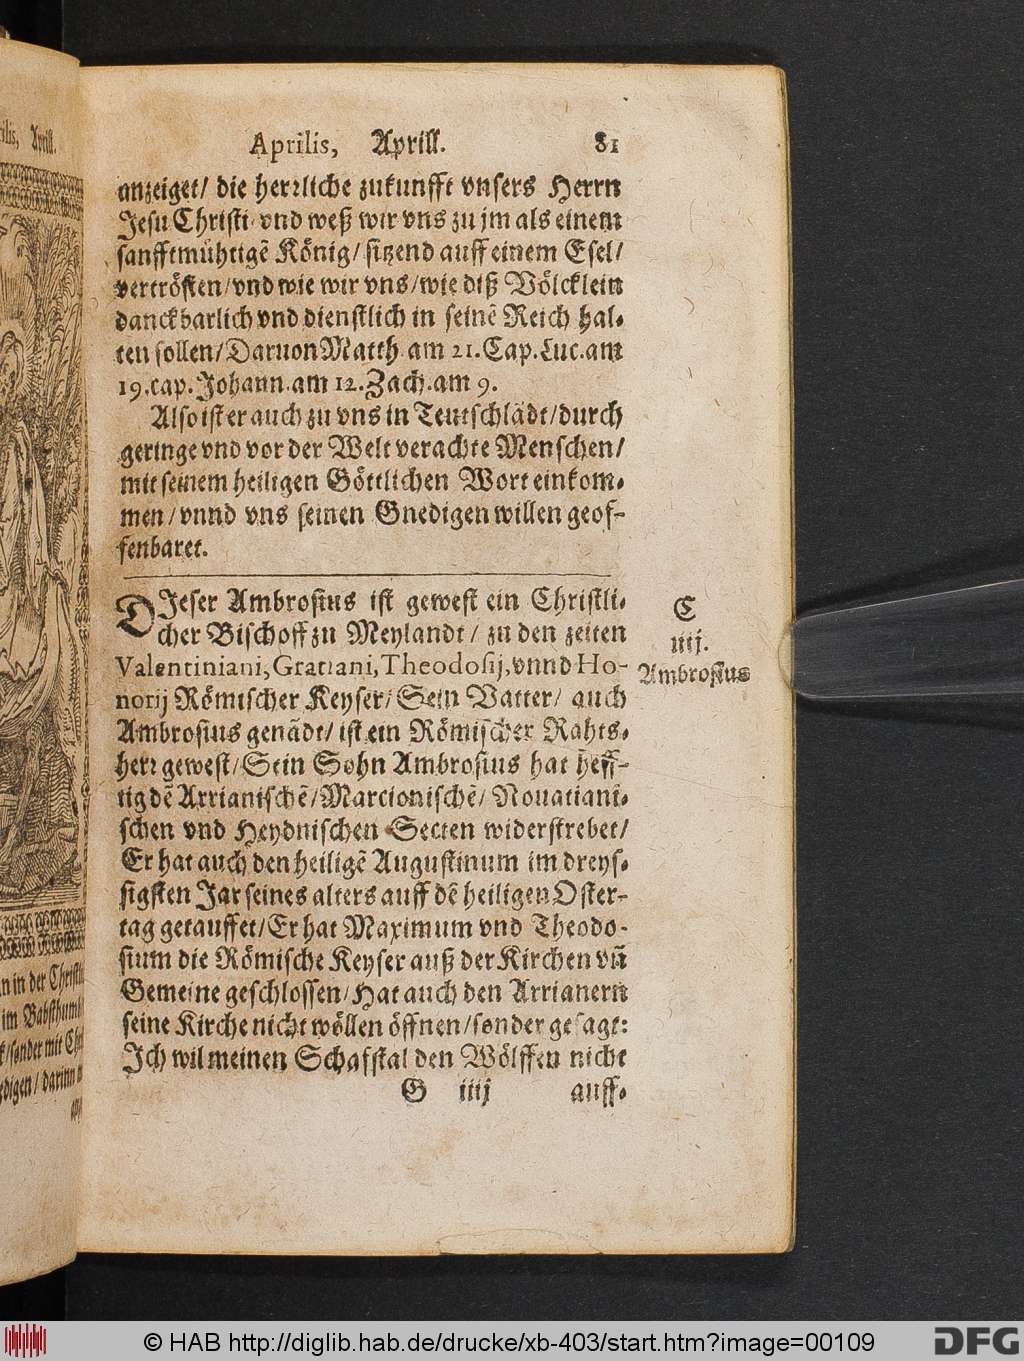 Aprilis, Aprill. 81
anzeiget/ die herrliche zukunfft vnsers Herrn
Jesu Christi/ vnd weß wir vns zu jm als einem
sanfftmühtigẽ König/ sitzend auff einem Esel/
vertrösten/ vnd wie wir vns/ wie diß Völcklein
danckbarlich vnd dienstlich in seinẽ Reich hal-
ten sollen/ Daruon Matth. am 21. Cap. Luc. am
19. cap. Johann. am 12. Zach. am 9.
Also ist er auch zu vns in Teutschlãdt/ durch
geringe vnd vor der Welt verachte Menschen/
mit seinem heiligen Göttlichen Wort einkom-
men/ vnnd vns seinen Gnedigen willen geof-
fenbaret.
DIeser Ambrosius ist gewest ein Christli-
cher Bischoff zu Meylandt/ zu den zeiten
Valentiniani, Gratiani, Theodosij, vnnd Ho-
norij Römischer Keyser/ Sein Vatter/ auch
Ambrosius genãdt/ ist ein Römischer Rahts-
herr gewest/ Sein Sohn Ambrosius hat heff-
tig dẽ Arrianischẽ/ Marcionischẽ/ Nouatiani-
schen vnd Heydnischen Secten widerstrebet/
Er hat auch den heiligẽ Augustinum im dreys-
sigsten Jar seines alters auff dẽ heiligen Oster-
tag getauffet/ Er hat Maximum vnd Theodo-
sium die Römische Keyser auß der Kirchen vñ
Gemeine geschlossen/ Hat auch den Arrianern
seine Kirche nicht wöllen öffnen/ sonder gesagt:
Ich wil meinen Schafstal den Wölffen nicht
G iiij auff-
C
iiij.
Ambrosius
Aprill.
n in der Christl
im Babsthumb
sonder mit
digen/ darinn
© HAB http://diglib.hab.de/drucke/xb-403/start.htm?image=00109
DFG